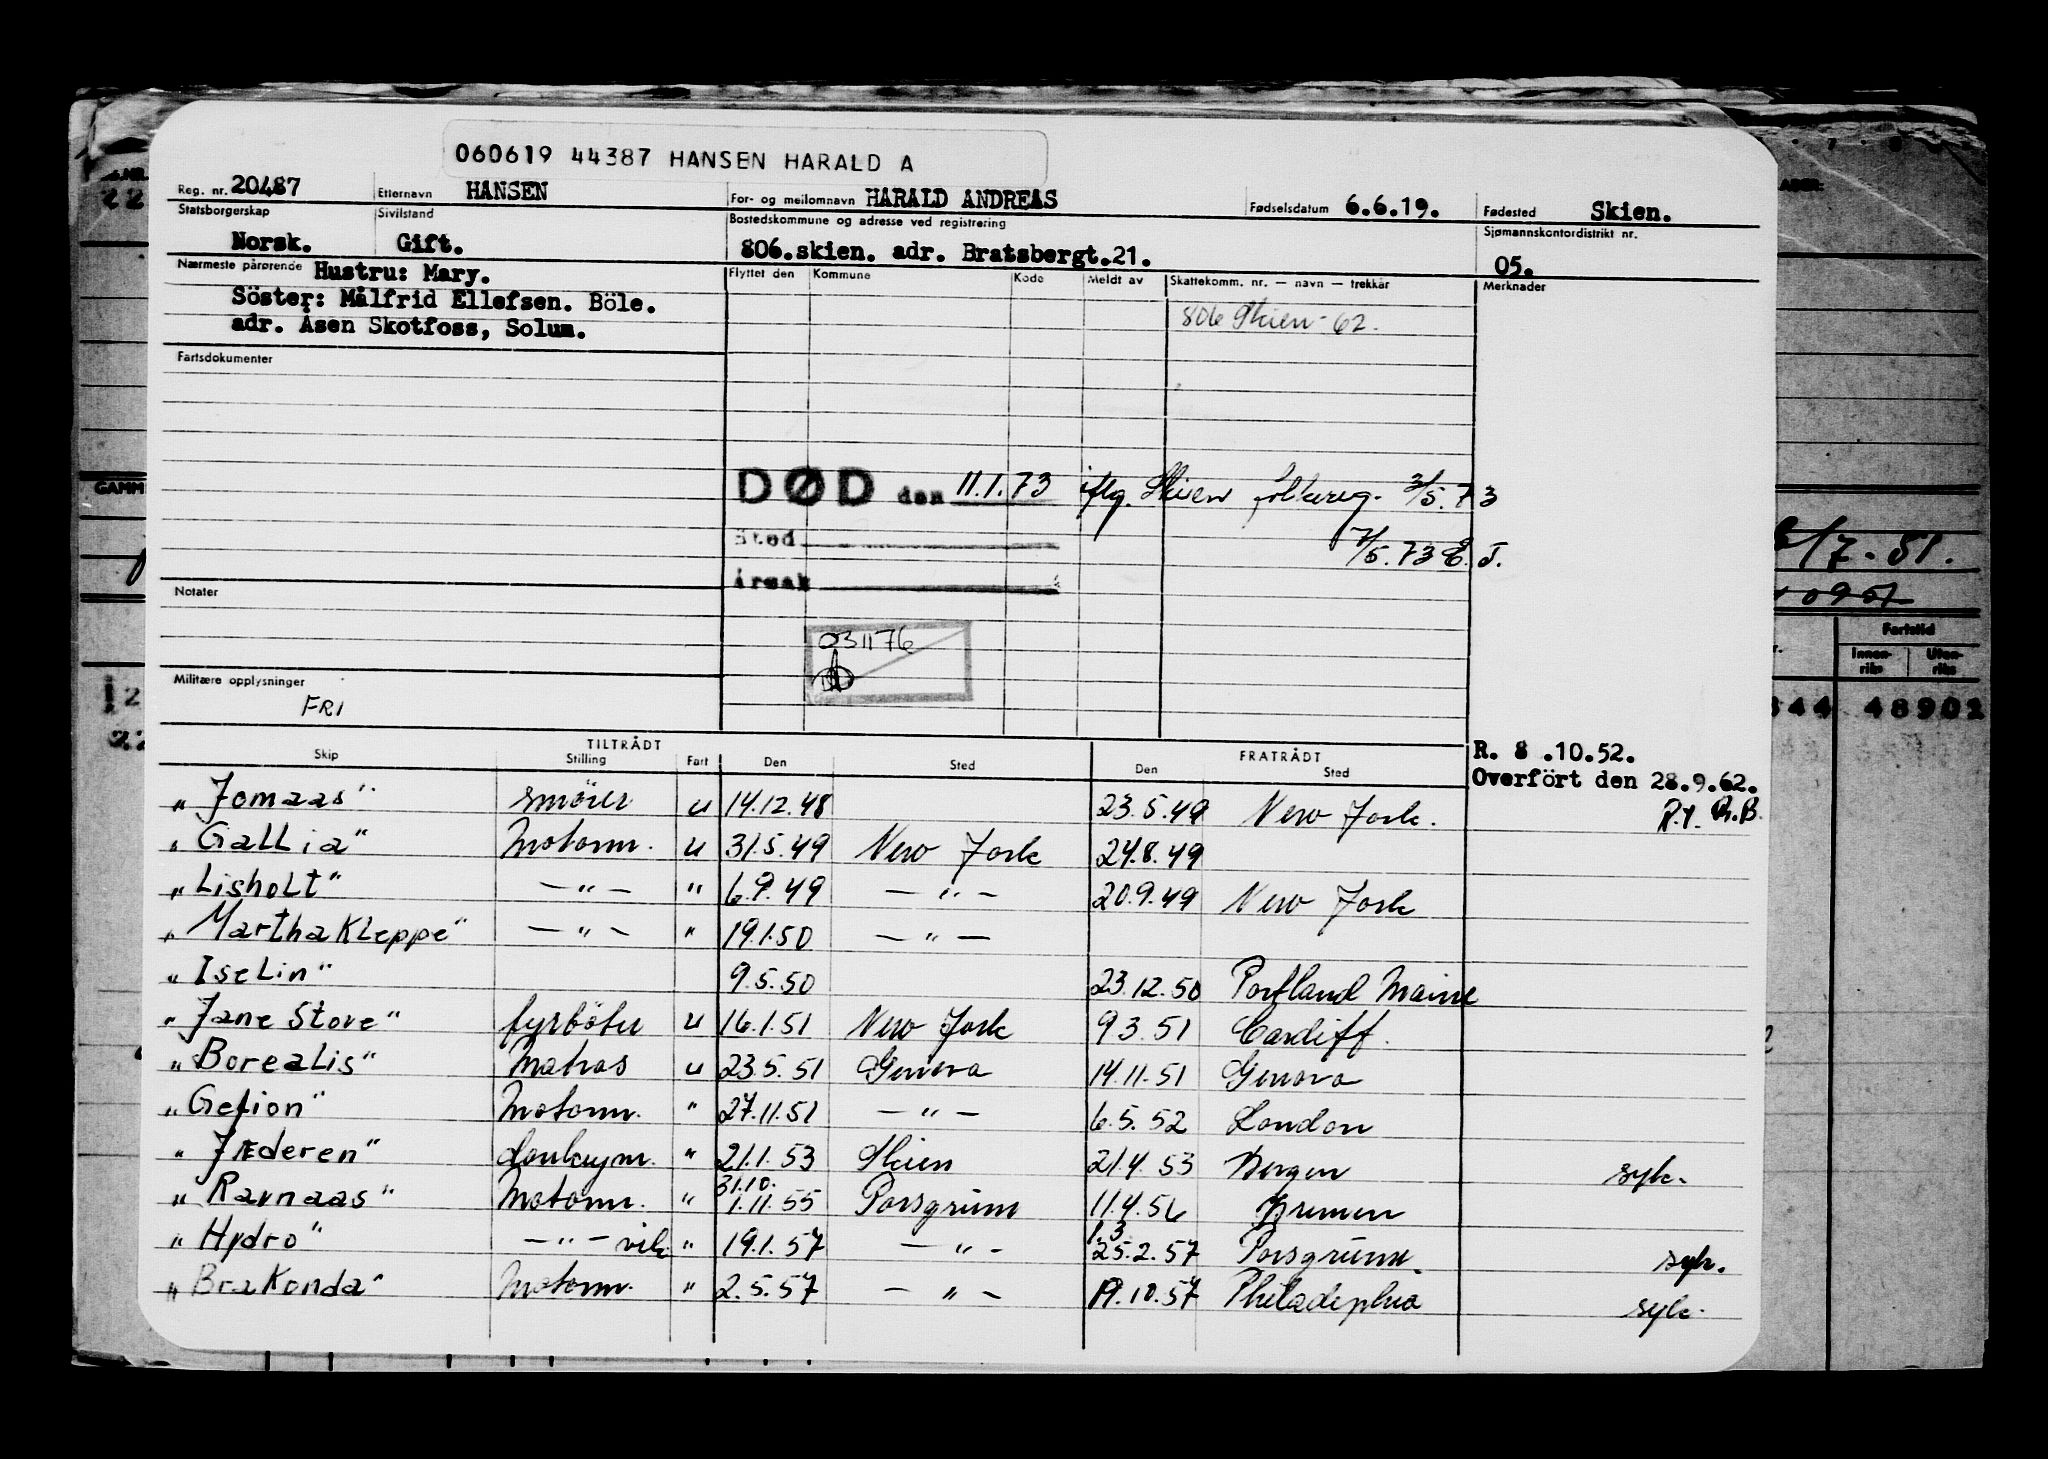 060619 44387 HANSEN HARALD A
Reg. nr. 20487 Etternavn HANSEN For- og mellomnavn HARALD ANDREAS Fødselsdatum 6.6.19. Fødested Skien.
Statsborgerskap Sivilstand Bostedskommune og adresse ved registrering Sjømannskontordistrikt nr.
Norsk. Gift. 806.skien. adr. Bratsbergt.21. 05.
Nærmeste pårørende Hustru: Mary. Flyttet den Kommune Kode Meldt av Skattekomm. nr. — navn — trekkår Merknader
Söster: Målfrid Ellefsen. Böle. 806 Skien - 62.
adr. Åsen Skotfoss, Solum.
Fartsdokumenter
DØD den 11.1.73 iflg. Skien folkereg. 3/5.73
Sted 7/5.73 E.J.
Årsak
Notater
031176
Militære opplysninger
FRI
R. 8 .10.52.
Overfört den 28.9.62.
R.B.
TILTRÅDT FRATRÅDT
Skip Stilling Fart Den Sted Den Sted
„ Jomaas" smörer u 14.12.48 23.5.49 New York.
„ Gallia" Motorm. u 31.5.49 New York 24.8.49
„ Lisholt" — " — " 6.9.49 — " — 20.9.49 New York
„ Martha Kleppe" — " — " 19.1.50 — " —
„ Iselin" 9.5.50 23.12.50 Portland Maine
„ Jane Stove" fyrböter u 16.1.51 New York 9 3.51 Cardiff.
„ Borealis" Matros u 23.5.51 Genova 14.11.51 Genova
„ Gefion" Motorm. " 27.11.51 — " — 6.5.52 London
„ Jæderen" donkeym. " 21.1.53 Skien 21.4.53 Bergen syk.
„ Ravnaas" Motorm. " 31.10. 1.11.55 Porsgrunn 11.4.56 Bremen
„ Hydro" — " — vik " 19.1.57 — " — 1.3 25.2.57 Porsgrunn. syk.
„ Brakonda" Motorm. " 2.5.57 — " — 19.10.57 Philadelphia syk.
GAMM
/7-51.
Fartstid
Innen-
riks
Uten-
riks
344 48902